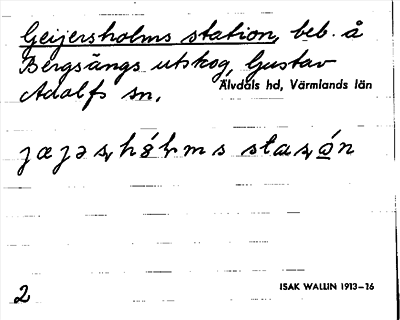 Geijersholms station, beb. å
Bergsängs utskog, Gustav
Adolfs sn. Älvdals hd, Värmlands län
2 ISAK WALLIN 1913–16